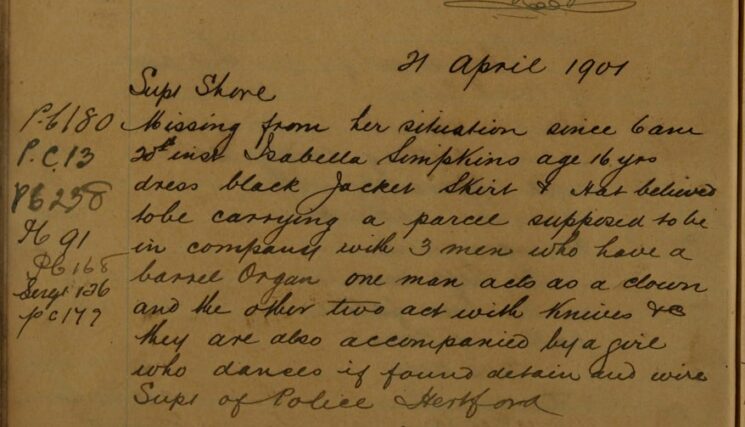 21 April 1901
Supt Shore
Missing from her situation since 6 am
20th inst Isabella Simpkins age 16 yrs
dress black Jacket Skirt & Hat believed
to be carrying a parcel supposed to be
in company with 3 men who have a
barrel Organ one man acts as a clown
and the other two act with Knives &c
they are also accompanied by a girl
who dances if found detain and wire
Supt of Police Hertford
P.C 180
P.C. 13
PC 258
91
PC 168
Sergt 126
PC 177